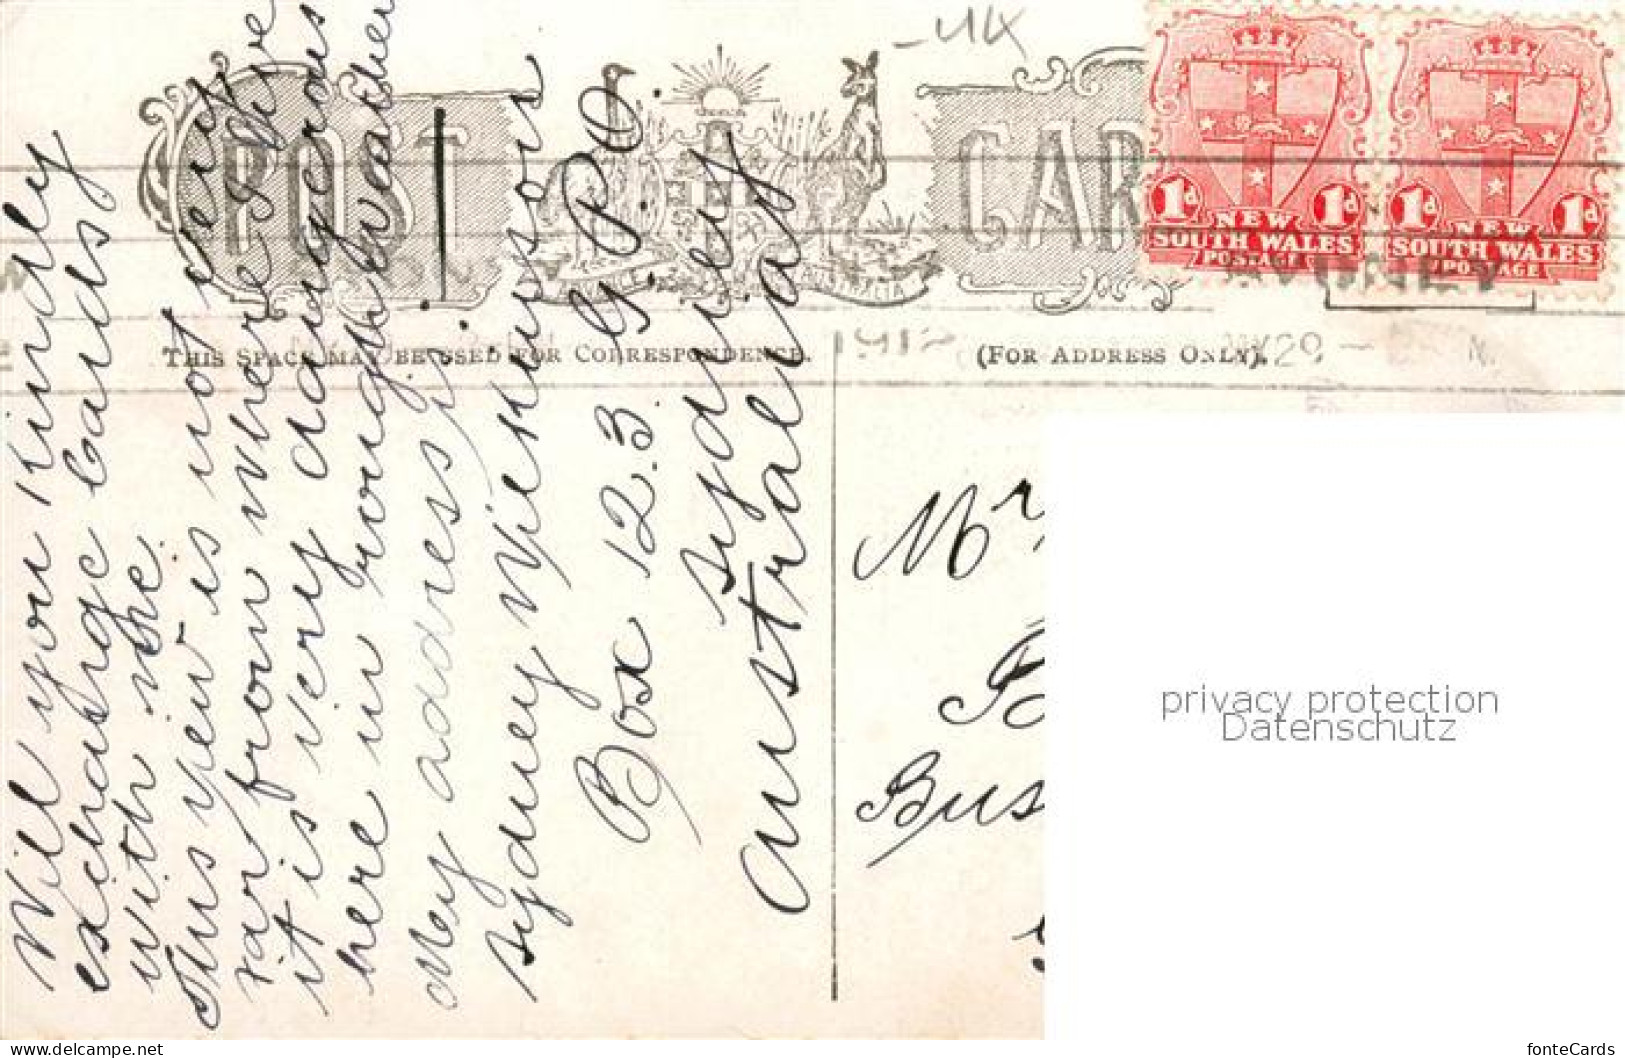 POST CARD
ADVANCE AUSTRALIA
THIS SPACE MAY BE USED FOR CORRESPONDENCE.
(FOR ADDRESS ONLY).
1d NEW 1d
SOUTH WALES
POSTAGE
1d NEW 1d
SOUTH WALES
POSTAGE
SYDNEY
1912
29
Will you Kindly
exchange Cards
with me.
This view is not very
far from where I live
it is very dangerous
here in rough weather
My address is
Sydney
Box 123 G.P.O.
Sydney
Australia
Mr
Bus
privacy protection
Datenschutz
www.delcampe.net
fonteCards